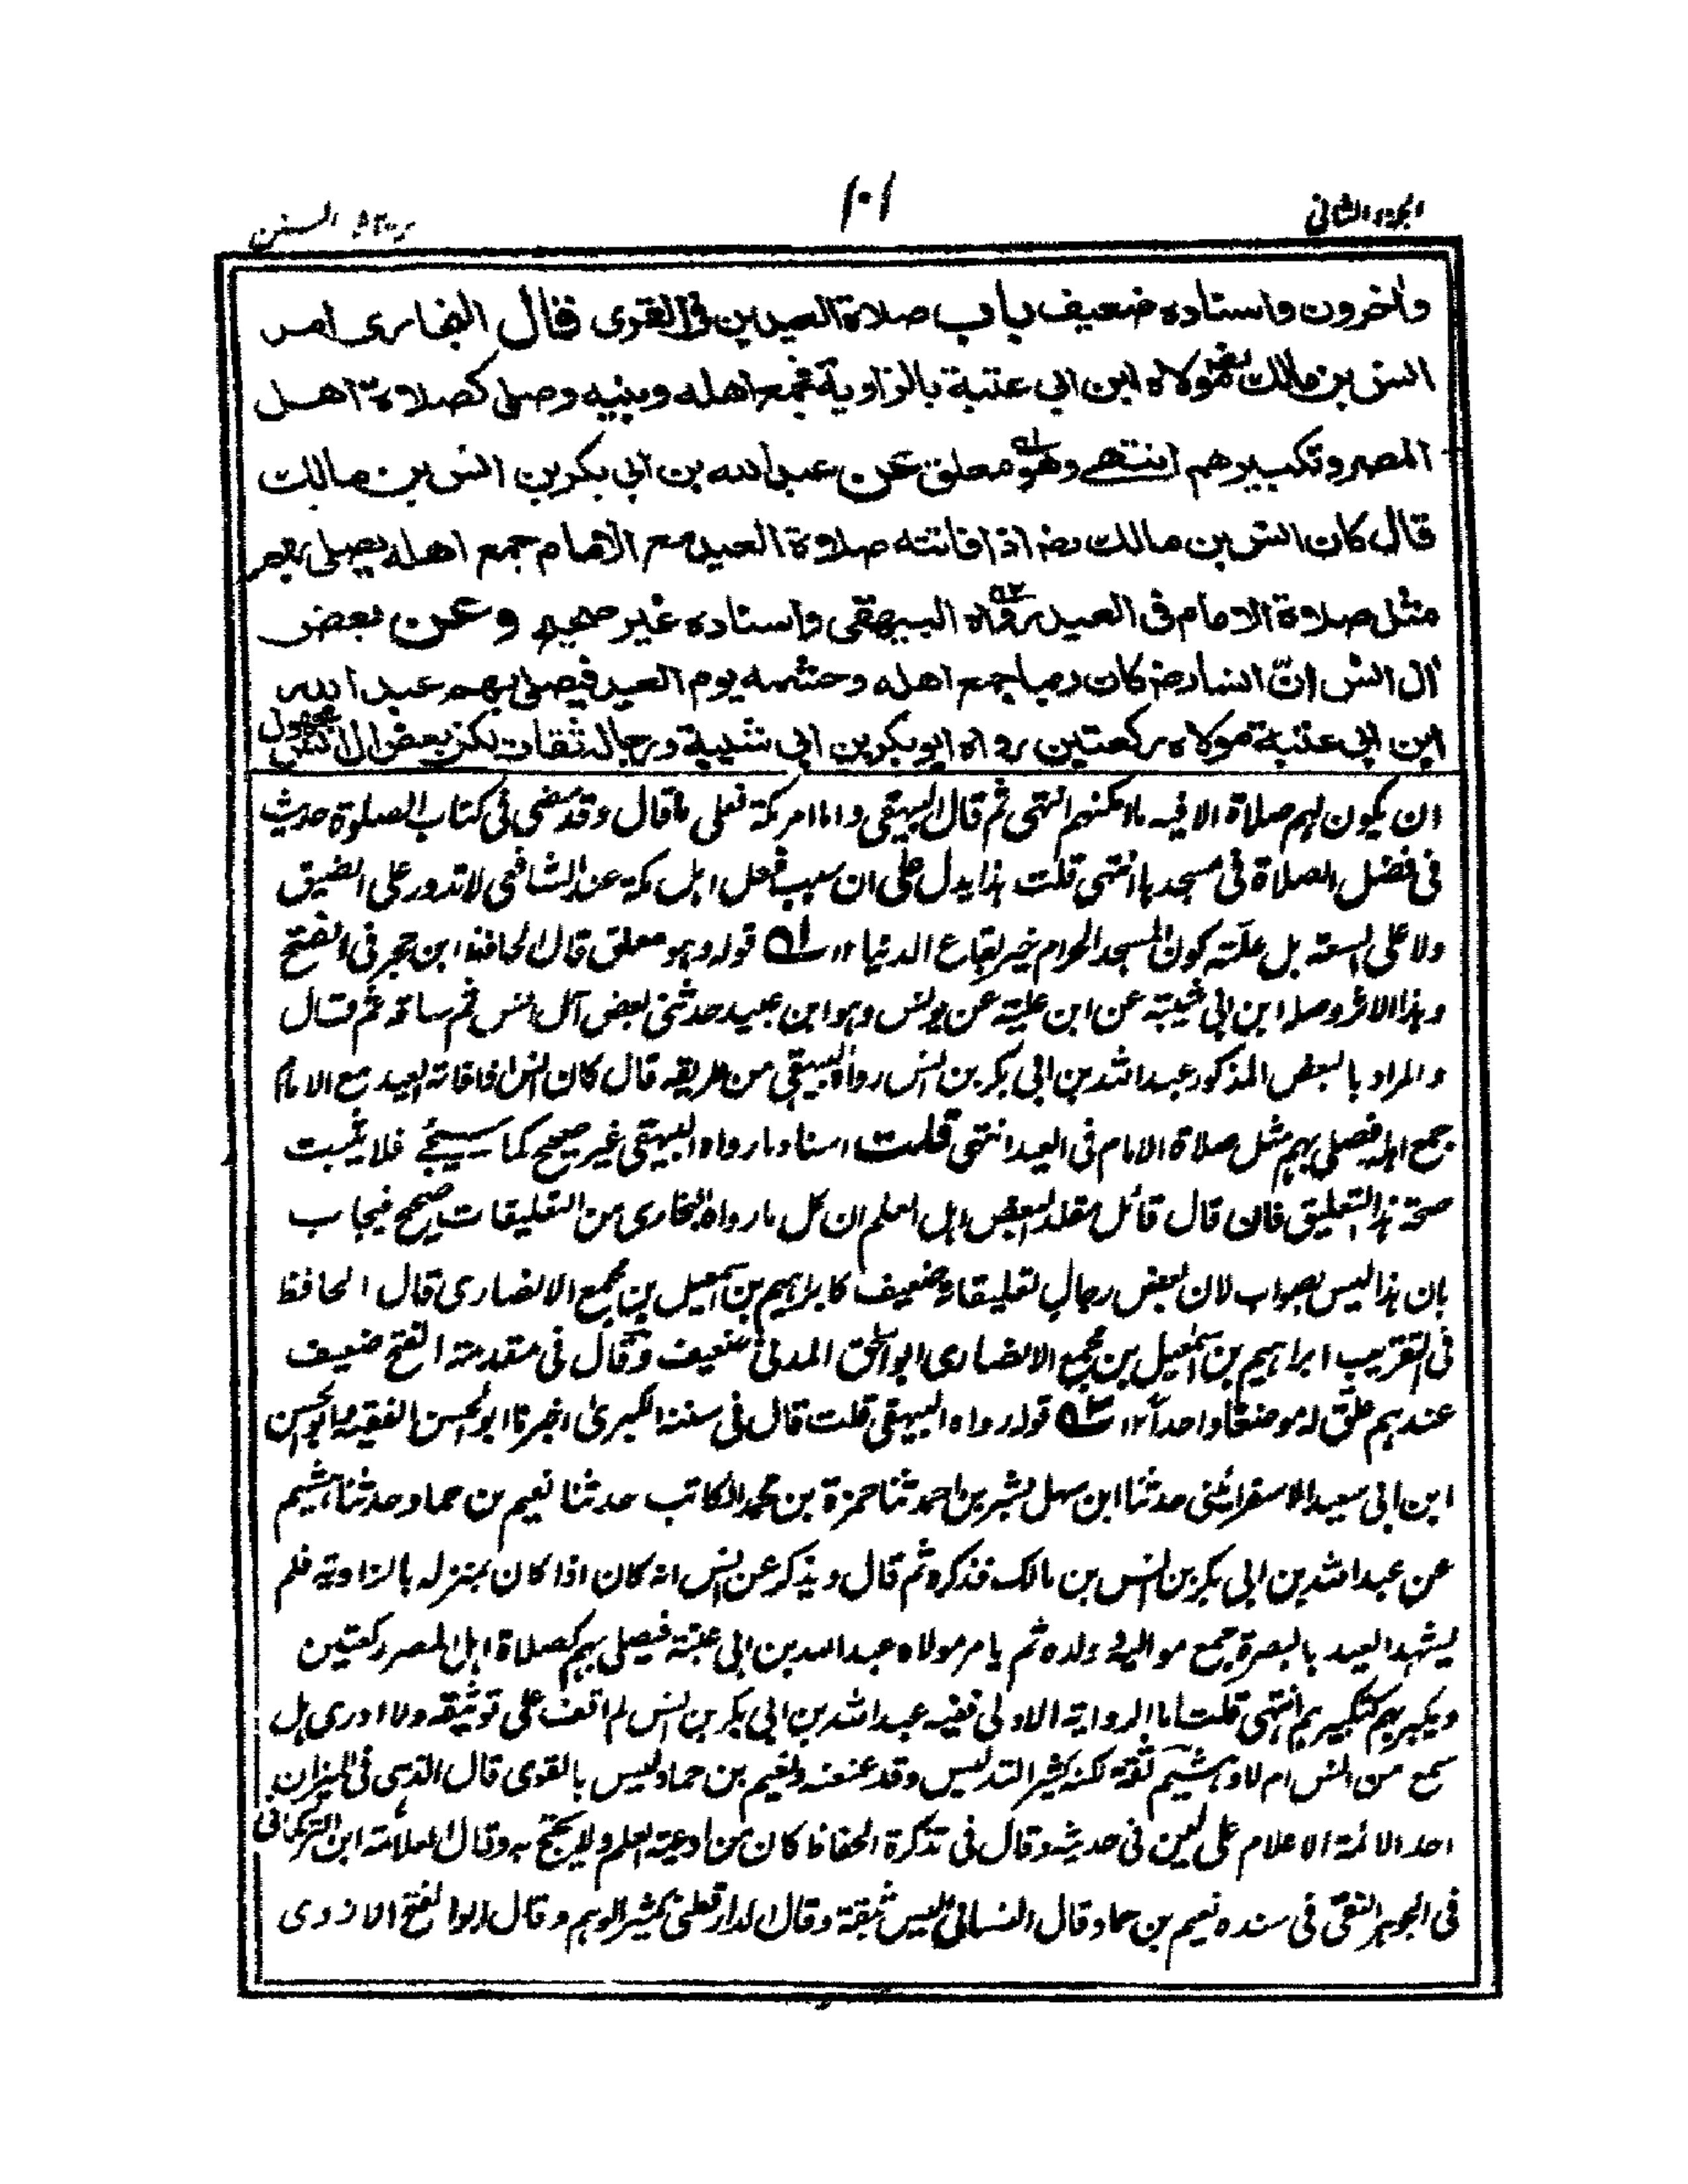 الجزء الثاني
١٠١
آثار السنن
وآخرون واسناده ضعيف باب صلاة العيدين في القرى قال البخاري امر
انس بن مالك مولاه ابن ابي عتبة بالزاوية فجمع اهله وبنيه وصلى كصلاة اهل
المصر وتكبيرهم انتهى وهو معلق عن عبد الله بن ابي بكر بن انس بن مالك
قال كان انس بن مالك رضـ اذا فاتته صلاة العيد مع الامام جمع اهله يصلي بهم
مثل صلاة الامام في العيد رواه البيهقي واسناده غير صحيح وعن بعض
آل انس انّ انسا رضـ كان ربما جمع اهله وحشمه يوم العيد فيصلي بهم عبد الله
ابن ابي عتبة مولاه ركعتين رواه ابو بكر بن ابي شيبة ورجاله ثقات لكن بعض آل انس مجهول
ان يكون لهم صلاة الا فيه ما امكنهم انتهى ثم قال البيهقي واما امر مكة فعلى ما قال وقد مضى في كتاب الصلوة حديث
في فضل الصلاة في مسجدها انتهى قلت هذا يدل على ان سبب فعل اهل مكة عن الشافعي لا تدور على الضيق
ولا على السعة بل علّته كون المسجد الحرام خير بقاع الدنيا ١٢ ۱ه قوله وهو معلق قال الحافظ ابن حجر في الفتح
وهذا الاثر وصله ابن ابي شيبة عن ابن علية عن يونس وهو ابن عبيد حدثني بعض آل انس ثم ساقه ثم قال
والمراد بالبعض المذكور عبد الله بن ابي بكر بن انس رواه البيهقي من طريقه قال كان انس اذا فاته العيد مع الامام
جمع اهله فصلى بهم مثل صلاة الامام في العيد انتهى قلت اسناد ما رواه البيهقي غير صحيح كما سيجئ فلا يثبت
صحة هذا التعليق فان قال قائل مقلد البعض اهل العلم ان كل ما رواه البخاري من التعليقات صحيح فيجاب
بان هذا ليس بصواب لان بعض رجال تعليقاته ضعيف كابراهيم بن اسمعيل بن مجمع الانصاري قال الحافظ
في التقريب ابراهيم بن اسمعيل بن مجمع الانصاري ابو اسحق المدني ضعيف وقال في مقدمة الفتح ضعيف
عندهم علّق له موضعًا واحداً ١٢ ۲ه قوله رواه البيهقي قلت قال في سننه الكبرى اخبرنا ابو الحسن الفقيه وابو الحسن
ابن ابي سعيد الاسفرائني حدثنا ابن سهل بشر بن احمد ثنا حمزة بن محمد الكاتب حدثنا نعيم بن حماد حدثنا هشيم
عن عبد الله بن ابي بكر بن انس بن مالك فذكره ثم قال ويذكر عن انس انه كان اذا كان بمنزله بالزاوية فلم
يشهد العيد بالبصرة جمع مواليه وولده ثم يامر مولاه عبد الله بن ابي عتبة فيصلي بهم كصلاة اهل المصر ركعتين
ويكبر بهم كتكبيرهم انتهى قلت اما الرواية الاولى ففيه عبد الله بن ابي بكر بن انس لم اقف على توثيقه ولا ادري هل
سمع من انس ام لا وهشيم ثقة لكنه كثير التدليس وقد عنعنه ونعيم بن حماد ليس بالقوى قال الذهبي في الميزان
احد الائمة الاعلام على لين في حديثه وقال في تذكرة الحفاظ كان من اوعية العلم ولا يحتج به وقال العلامة ابن التركماني
في الجوهر النقي في سنده نعيم بن حماد قال النسائي ليس بثقة وقال الدارقطني كثير الوهم وقال ابو الفتح الازدي